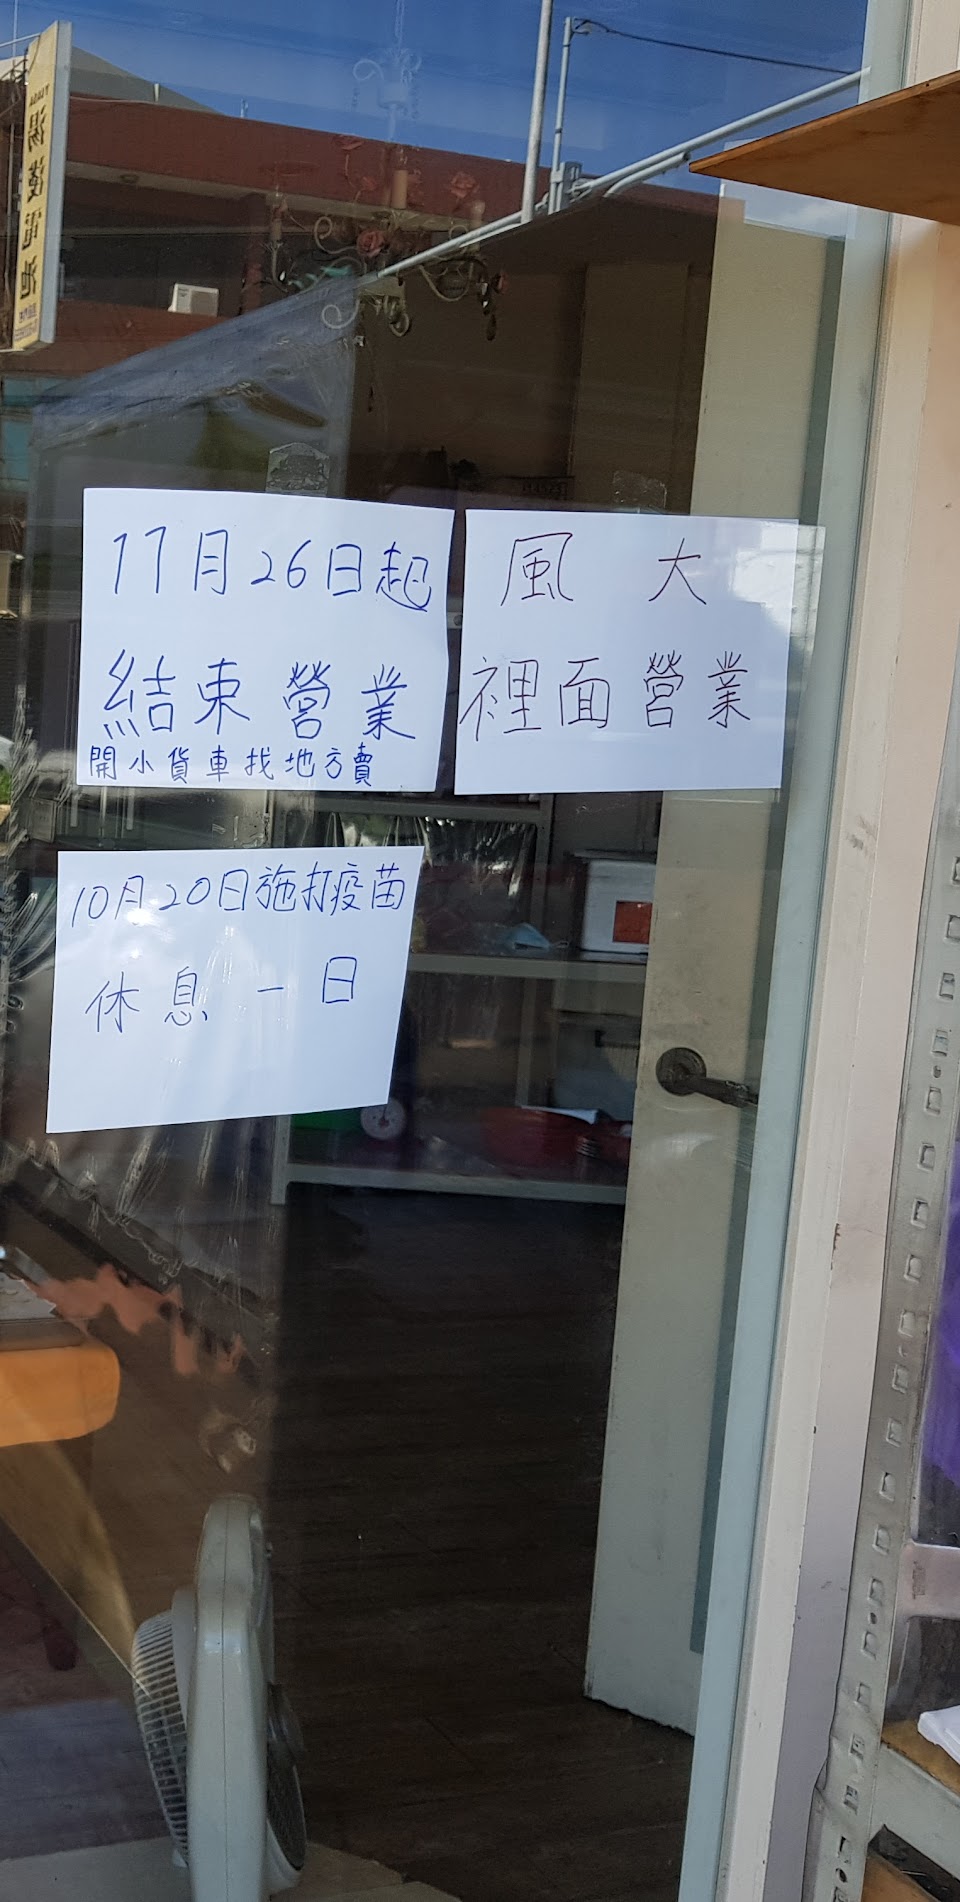 湯淺電池
11月26日起
結束營業
開小貨車找地方賣
風 大
裡面營業
10月20日施打疫苗
休息一日